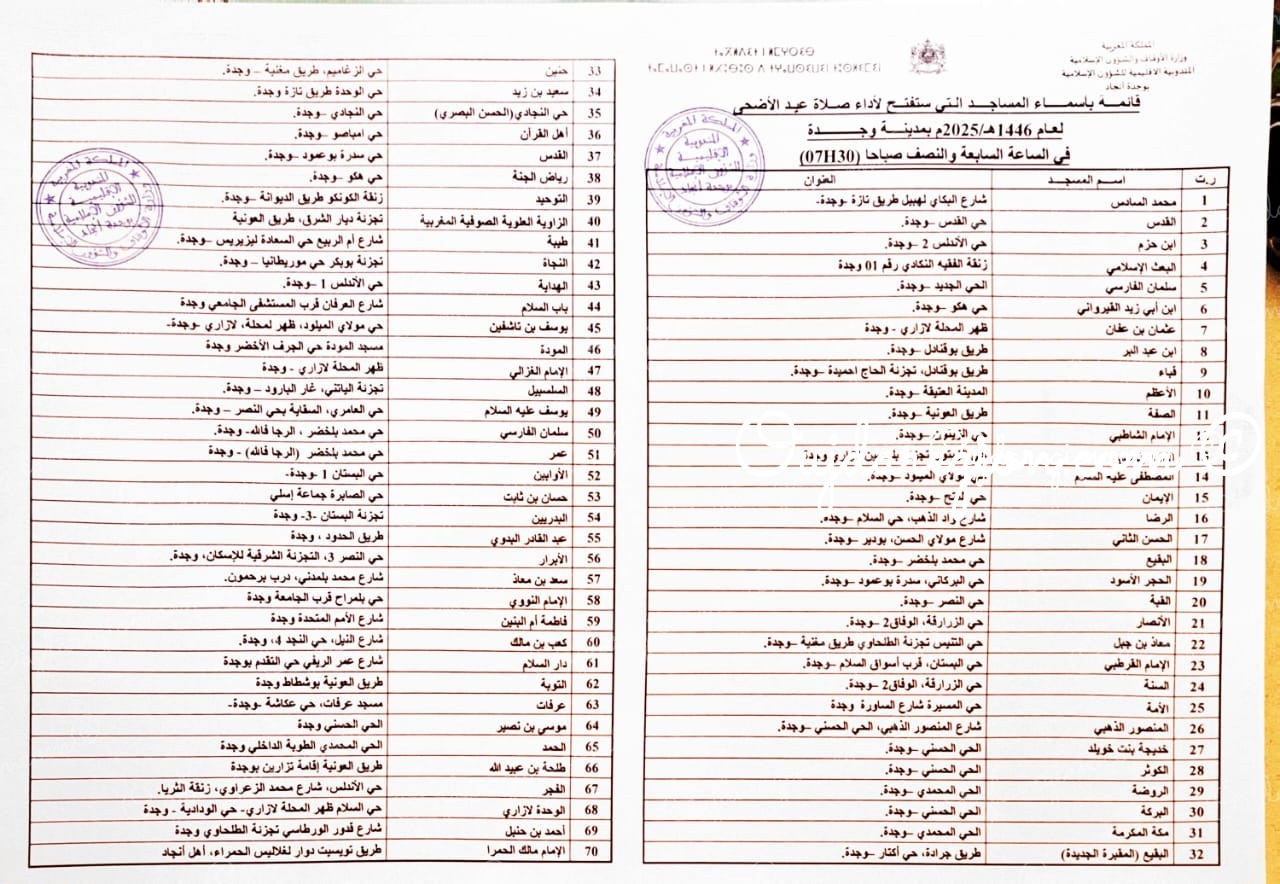 المملكة المغربية
وزارة الأوقاف والشؤون الإسلامية
المندوبية الاقليمية للشؤون الإسلامية
بوجدة أنجاد
قائمة بأسماء المساجد التي ستفتح لأداء صلاة عيد الأضحى
لعام 1446هـ/2025م بمدينة وجدة
في الساعة السابعة والنصف صباحا (07H30)
ر.ت اسم المسجد العنوان
1 محمد السادس شارع البكاي لهبيل طريق تازة -وجدة-
2 القدس حي القدس –وجدة.
3 ابن حزم حي الأندلس 2 –وجدة.
4 البعث الإسلامي زنقة الفقيه النكادي رقم 01 وجدة
5 سلمان الفارسي الحي الجديد –وجدة.
6 ابن أبي زيد القيرواني حي هكو –وجدة.
7 عثمان بن عفان ظهر المحلة لازاري - وجدة
8 ابن عبد البر طريق بوقنادل –وجدة.
9 قباء طريق بوقنادل، تجزئة الحاج احميدة –وجدة.
10 الأعظم المدينة العتيقة –وجدة.
11 الصفة طريق العونية –وجدة.
الإمام الشاطبي حي الزيتون –وجدة.
13 تجزئة لازاري وجدة
14 المصطفى عليه السلام حي مولاي الميلود –وجدة.
15 الإيمان حي لفتح –وجدة.
16 الرضا شارع واد الذهب، حي السلام –وجدة.
17 الحسن الثاني شارع مولاي الحسن، بودير –وجدة.
18 البقيع حي محمد بلخضر –وجدة.
19 الحجر الأسود حي البركاني، سدرة بوعمود –وجدة.
20 القبة حي النصر –وجدة.
21 الأنصار حي الزرارقة، الوفاق2 –وجدة.
22 معاذ بن جبل حي التنيس تجزئة الطلحاوي طريق مغنية –وجدة.
23 الإمام القرطبي حي البستان، قرب أسواق السلام –وجدة.
24 السنة حي الزرارقة، الوفاق2 –وجدة.
25 الأمة حي المسيرة شارع الساورة وجدة
26 المنصور الذهبي شارع المنصور الذهبي، الحي الحسني –وجدة.
27 خديجة بنت خويلد الحي الحسني –وجدة.
28 الكوثر الحي الحسني –وجدة.
29 الروضة الحي المحمدي –وجدة.
30 البركة الحي الحسني –وجدة.
31 مكة المكرمة الحي المحمدي –وجدة.
32 البقيع (المقبرة الجديدة) طريق جرادة، حي أكنار –وجدة.
33 حنين حي الزغاميم، طريق مغنية – وجدة.
34 سعيد بن زيد حي الوحدة طريق تازة وجدة.
35 حي النجادي(الحسن البصري) حي النجادي –وجدة.
36 أهل القرآن حي امباصو –وجدة.
37 القدس حي سدرة بوعمود –وجدة.
38 رياض الجنة حي هكو –وجدة.
39 التوحيد زنقة الكونكو طريق الديوانة –وجدة.
40 الزاوية العلوية الصوفية المغربية تجزئة ديار الشرق، طريق العونية
41 طيبة شارع أم الربيع حي السعادة ليزيريس –وجدة.
42 النجاة تجزئة بوبكر حي موريطانيا – وجدة.
43 الهداية حي الأندلس 1 –وجدة.
44 باب السلام شارع العرفان قرب المستشفى الجامعي وجدة
45 يوسف بن تاشفين حي مولاي الميلود، ظهر لمحلة، لازاري -وجدة-
46 المودة مسجد المودة حي الجرف الأخضر وجدة
47 الإمام الغزالي ظهر المحلة لازاري - وجدة
48 السلسبيل تجزئة الياتني، غار البارود – وجدة.
49 يوسف عليه السلام حي العامري، السقاية بحي النصر – وجدة.
50 سلمان الفارسي حي محمد بلخضر ، الرجا فالله- وجدة.
51 عمر حي محمد بلخضر (الرجا فالله) - وجدة.
52 الأوابين حي البستان 1 -وجدة-
53 حسان بن ثابت حي الصابرة جماعة إسلي
54 البدريين تجزئة البستان -3- وجدة
55 عبد القادر البدوي طريق الحدود ، وجدة
56 الأبرار حي النصر 3، التجزئة الشرقية للإسكان، وجدة.
57 سعد بن معاذ شارع محمد بلمدني، درب برحمون.
58 الإمام النووي حي بلمراح قرب الجامعة وجدة
59 فاطمة أم البنين شارع الأمم المتحدة وجدة
60 كعب بن مالك شارع النيل، حي النجد 4، وجدة.
61 دار السلام شارع عمر الريفي حي التقدم بوجدة
62 التوبة طريق العونية بوشطاط وجدة
63 عرفات مسجد عرفات، حي عكاشة -وجدة-
64 موسي بن نصير الحي الحسني وجدة
65 الحمد الحي المحمدي الطوبة الداخلي وجدة
66 طلحة بن عبيد الله طريق العونية إقامة تزارين بوجدة
67 الفجر حي الأندلس، شارع محمد الزعراوي، زنقة الثريا.
68 الوحدة لازاري حي السلام ظهر المحلة لازاري- حي الودادية - وجدة
69 أحمد بن حنبل شارع قدور الورطاسي تجزئة الطلحاوي وجدة
70 الإمام مالك الحمرا طريق تويسيت دوار لغلاليس الحمراء، أهل أنجاد